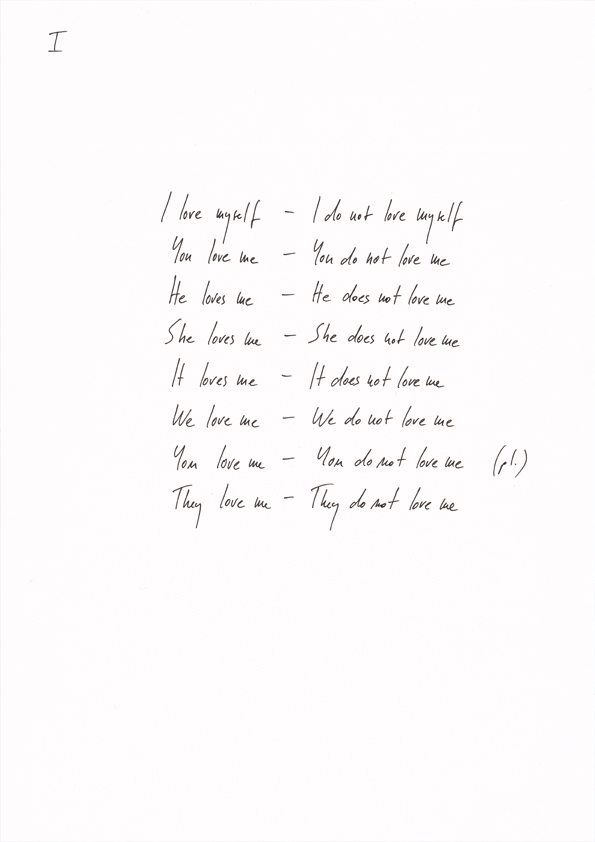 I
I love myself – I do not love myself
You love me – You do not love me
He loves me – He does not love me
She loves me – She does not love me
It loves me – It does not love me
We love me – We do not love me
You love me – You do not love me (pl.)
They love me – They do not love me